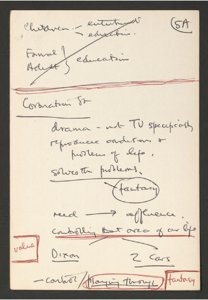 5A
Children - entertainment
education
Formal
Adult } education
Coronation St
drama - not TV specifically
reproduce conditions &
problem of life.
solves the problems.
fantasy
need → affluence.
controlling that area of our life
value
Dixon 2 Cars
- control playing through fantasy